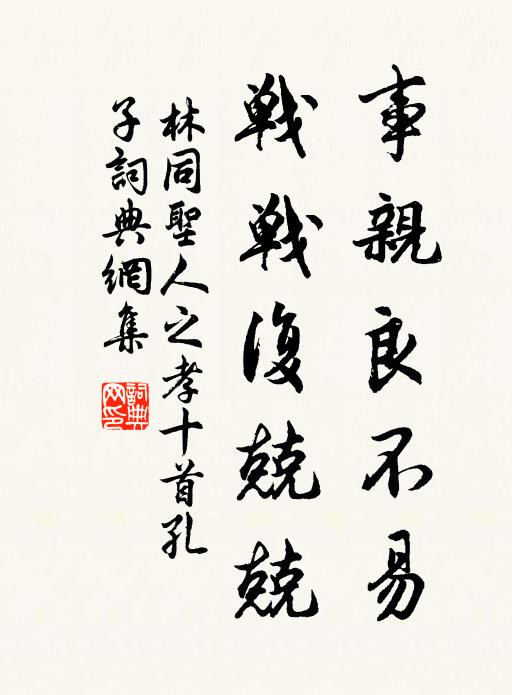 事親良不易
戰戰復兢兢
林同聖人之孝十首孔
子詞典網集
詞典网印